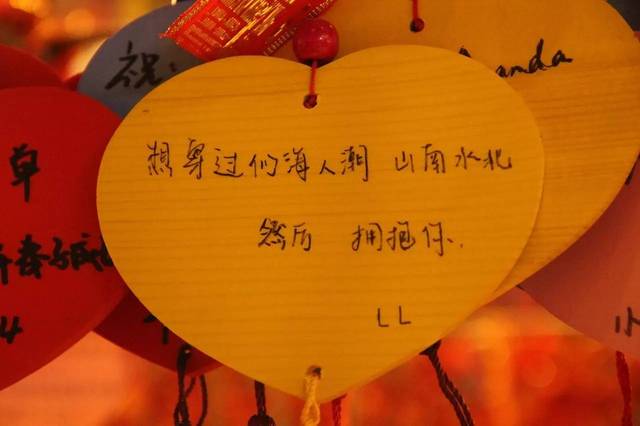 祝:
anda
想穿过们海人潮 山南水北
然后 拥抱你.
LL
小